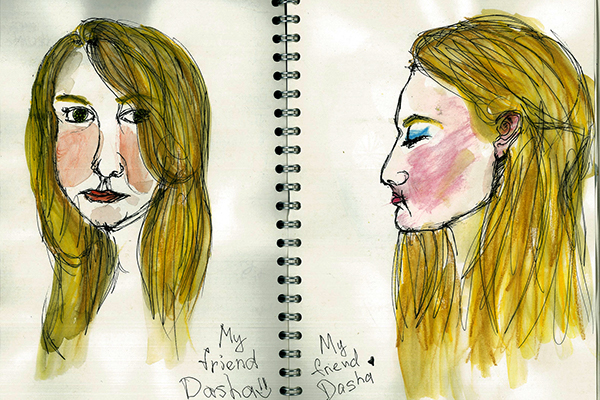 My
friend
Dasha
My
friend
Dasha